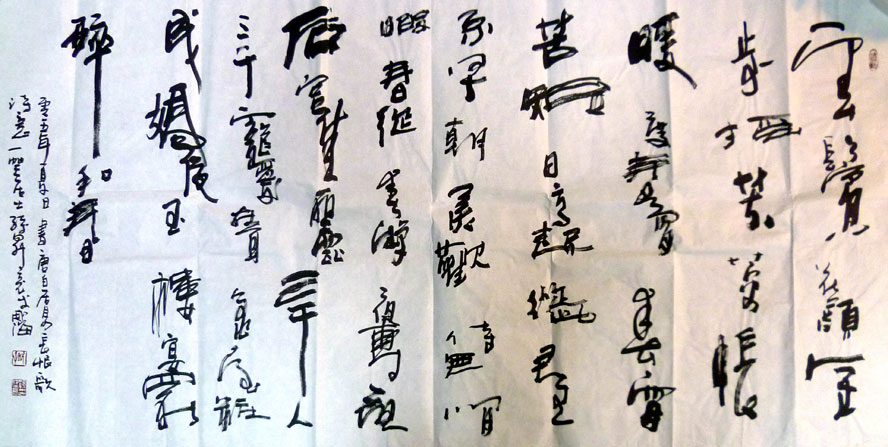 雲鬢花顏金
步搖芙蓉帳
暖度春宵春宵
苦短日高起從此君王
不早朝承歡侍無閒
暇春從春遊夜專夜
后宮佳麗三千人
三千寵愛在一身金屋妝
成嬌夜玉樓宴罷
醉和春
零五年夏日書唐白居易長恨歌
詩意一居士